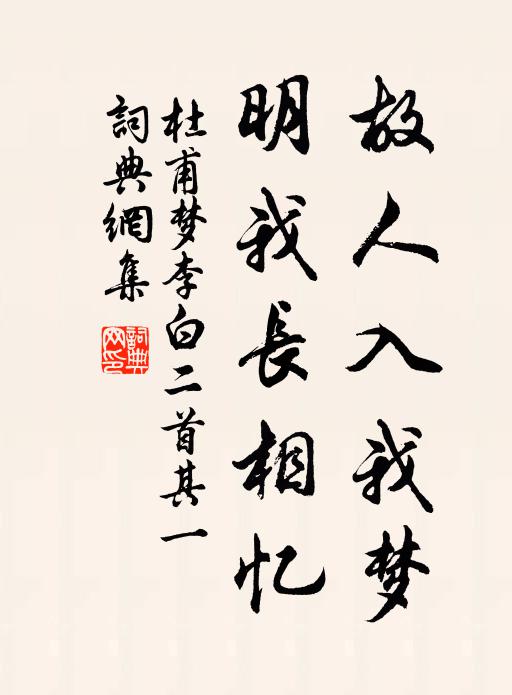 故人入我梦
明我長相忆
杜甫梦李白二首其一
詞典網集
詞典网印